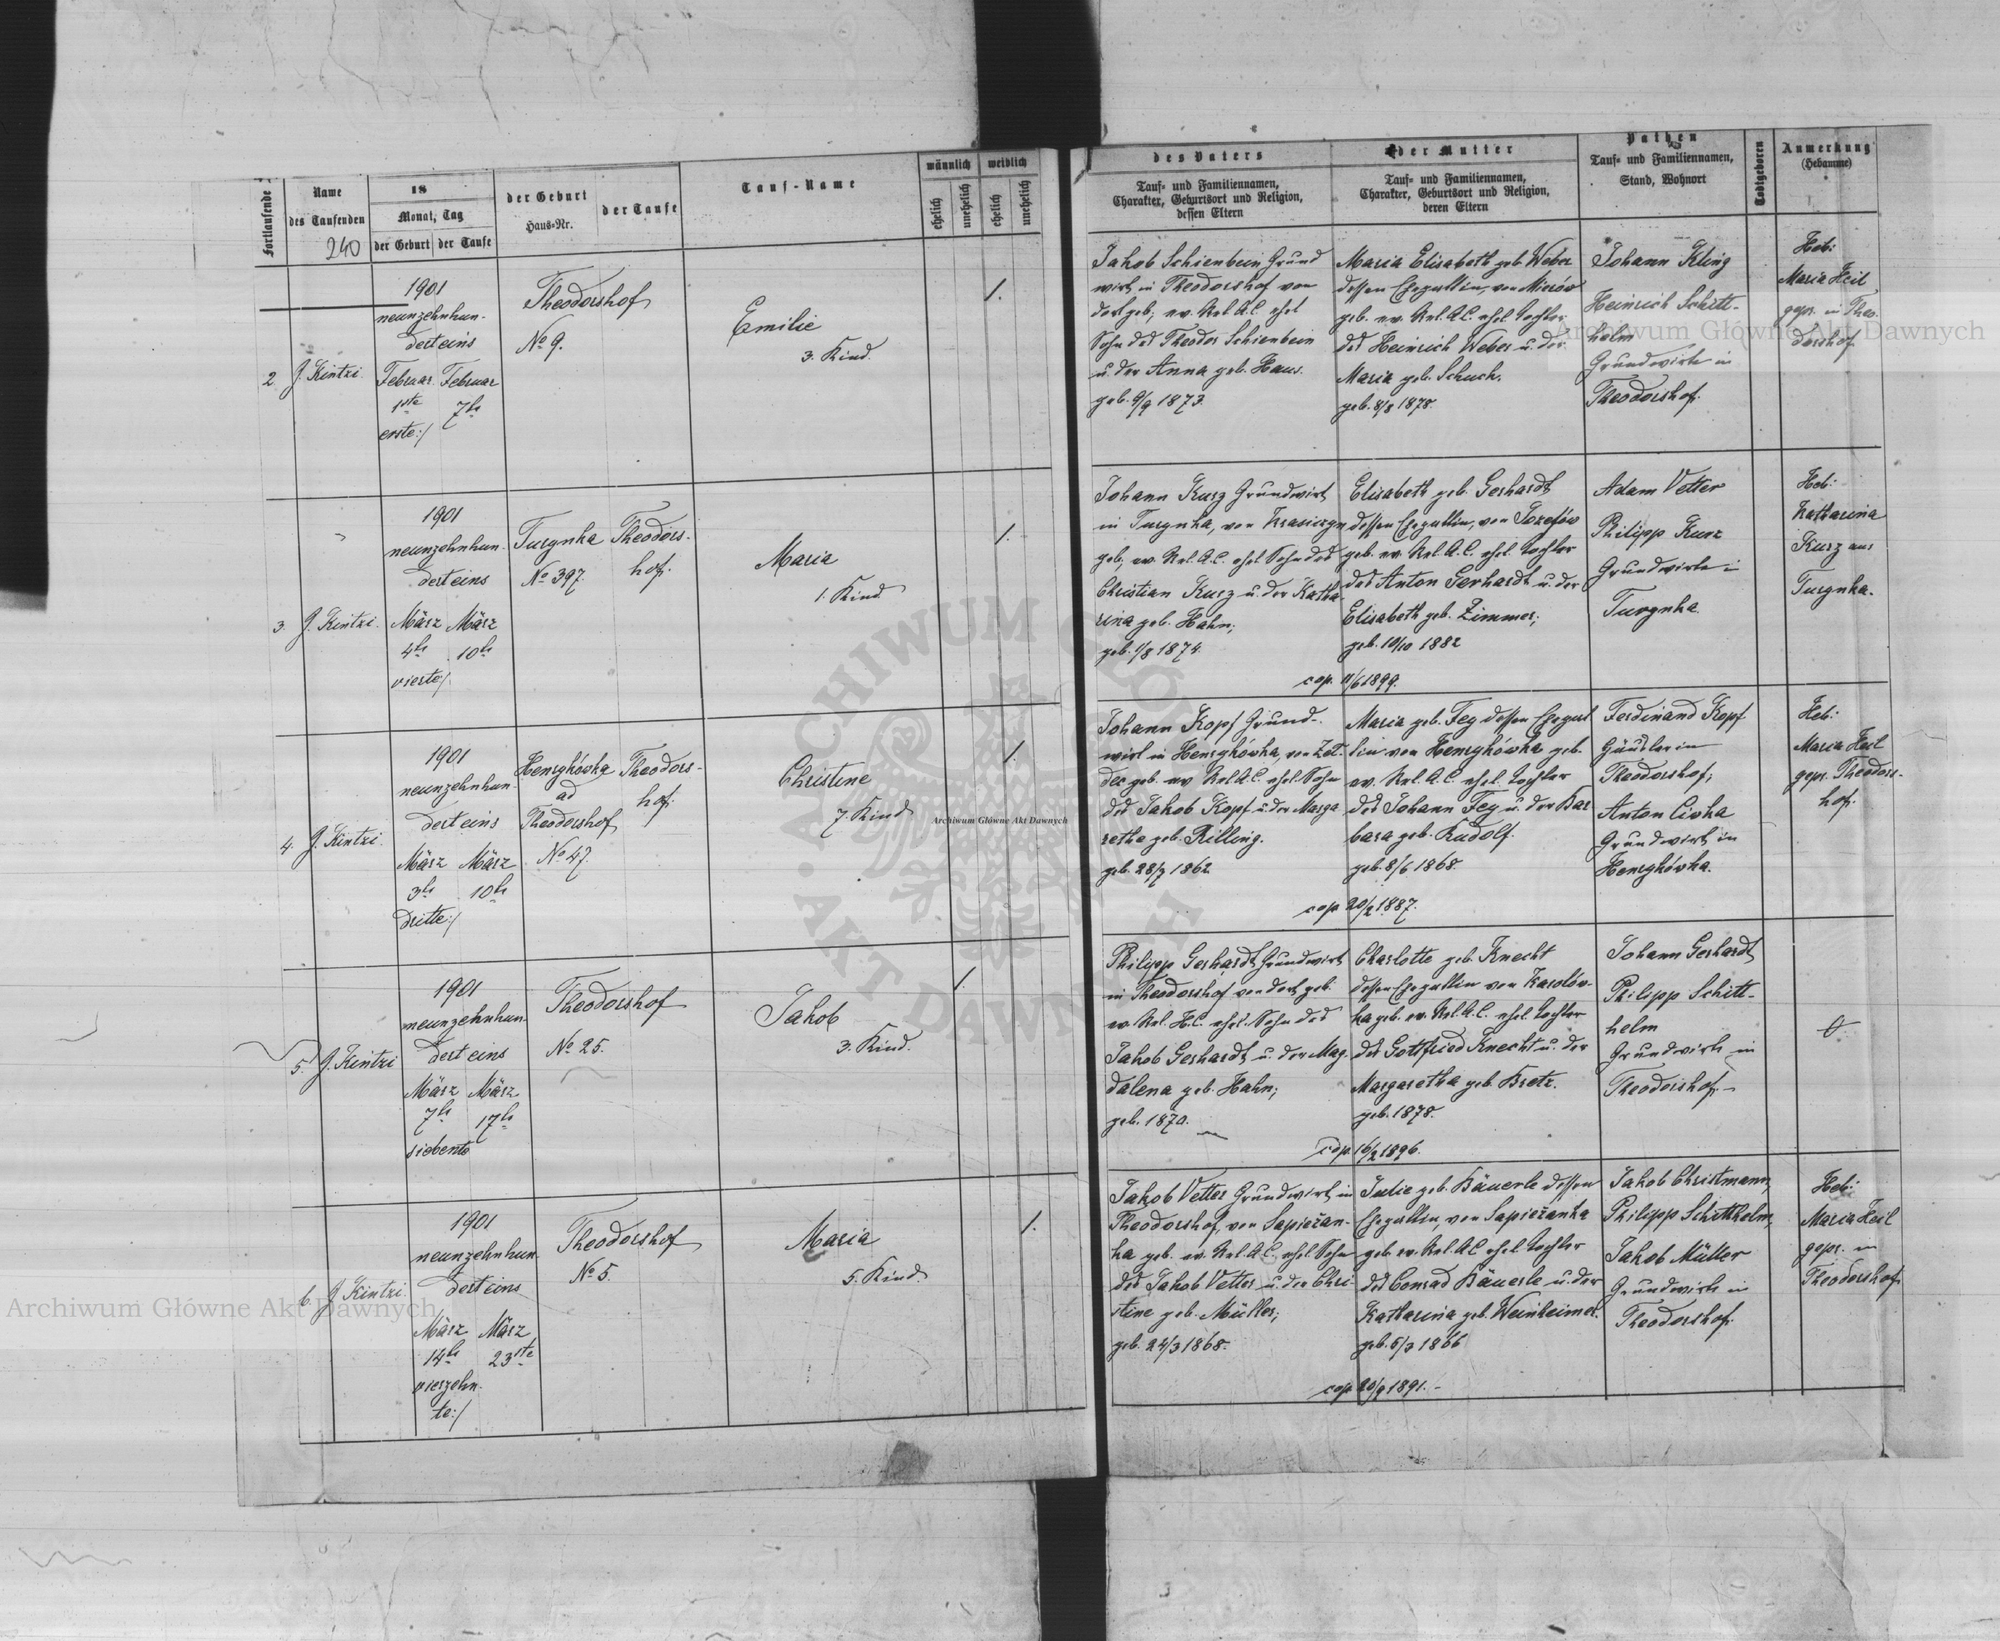 Fortlaufende
Name
des Taufenden
240
18
Monat, Tag
der Geburt
der Taufe
der Geburt
Haus=Nr.
der Taufe
Tauf=Name
männlich
weiblich
ehelich
unehelich
ehelich
unehelich
des Vaters
Tauf= und Familiennamen,
Charakter, Geburtsort und Religion,
dessen Eltern
der Mutter
Tauf= und Familiennamen,
Charakter, Geburtsort und Religion,
deren Eltern
Pathen
Tauf= und Familiennamen,
Stand, Wohnort
Todtgeboren
Anmerkung
(Hebamme)
2
J. Kintzi.
1901
neunzehnhun-
dert eins
Februar Februar
1ste 7te
erste:/
Theodorshof
No 9.
Emilie
3. Kind.
1.
Jakob Schienbein Grund
wirt in Theodorshof von
dort geb; ev. Rel. A.C. ehel
Sohn des Theodor Schienbein
u. der Anna geb. Haus.
geb. 9/9 1873.
Maria Elisabeth geb. Weber
dessen Ehegattin, von Mierów
geb. ev. Rel. A.C. ehel. Tochter
des Heinrich Weber u. der
Maria geb. Schuch.
geb. 8/8 1878.
Johann Kling
Heinrich Schitt-
helm
Grundwirte in
Theodorshof.
Heb:
Maria Heil
gepr. in Theo-
dorshof
3.
J. Kintzi.
1901
neunzehnhun-
dert eins
März März
4te 10te
vierte:/
Turynka
No 397.
Theodors-
hof.
Maria
1. Kind
1.
Johann Kurz Grundwirt
in Turynka, von Krasiczyn
geb, ev. Rel. A.C. ehel Sohn des
Christian Kurz u. der Katha-
rina geb. Hahn;
geb. 1/8 1874.
Elisabeth geb. Gerhardt
dessen Ehegattin, von Jozefów
geb. ev. Rel. A.C. ehel Tochter
des Anton Gerhardt u. der
Elisabeth geb. Zimmer;
geb. 10/10 1882
cop. 11/6 1899.
Adam Vetter
Philipp Kurz
Grundwirte in
Turynka.
Heb:
Katharina
Kurz aus
Turynka.
4.
J. Kintzi.
1901
neunzehnhun-
dert eins
März März
3te 10te
dritte:/
Henrykówka
ad
Theodorshof
No 47.
Theodors-
hof.
Christine
7. Kind
1.
Johann Kopf Grund-
wirt in Henrykówka, von Zet-
dec geb. ev. Rel. A.C. ehel. Sohn
des Jakob Kopf u. der Marga
retha geb. Rilling.
geb. 28/7 1862
Maria geb. Fey dessen Ehegat
tin von Henrykówka geb.
ev. Rel. A.C. ehel. Tochter
des Johann Fey u. der Bar
bara geb. Rudolf.
geb. 8/6 1868.
cop 20/2 1887.
Ferdinand Kopf
Häusler in
Theodorshof;
Anton Civka
Grundwirt in
Henrykówka.
Heb:
Maria Heil
gepr. Theodors-
hof.
5.
J. Kintzi
1901
neunzehnhun-
dert eins
März März
7te 17te
siebente
Theodorshof
No 25.
Jakob
3. Kind.
1.
Philipp Gerhardt Grundwirt
in Theodorshof von dort geb.
ev. Rel. H.C. ehel. Sohn des
Jakob Gerhardt u. der Mag-
dalena geb. Hahn;
geb. 1870.
Charlotte geb. Knecht
dessen Ehegattin von Karolów-
ka geb. ev. Rel. A.C. ehel Tochter
des Gottfried Knecht u. der
Margaretha geb. Bretz.
geb. 1878.
cop. 16/2 1896.
Johann Gerhardt
Philipp Schitt-
helm
Grundwirte in
Theodorshof.
6.
J. Kintzi.
1901
neunzehnhun
dert eins
März März
14te 23ste
vierzehn-
te:/
Theodorshof
No 5.
Maria
5. Kind.
1.
Jakob Vetter Grundwirt in
Theodorshof, von Sapiežan-
ka geb. ev. Rel. A.C. ehel. Sohn
des Jakob Vetter u. der Chri-
stine geb. Müller;
geb. 24/3 1868.
Julie geb. Bäuerle dessen
Ehegattin, von Sapiežanka
geb. ev. Rel. A.C. ehel Tochter
des Conrad Bäuerle u. der
Katharina geb. Weinheimer.
geb. 5/3 1866
cop 20/9 1891.-
Jakob Christmann,
Philipp Schitthelm,
Jakob Müller
Grundwirte in
Theodorshof.
Heb:
Maria Heil
gepr. in
Theodorshof.
Archiwum Główne Akt Dawnych
Archiwum Główne Akt Dawnych
Archiwum Główne Akt Dawnych
ARCHIWUM GŁÓWNE AKT DAWNYCH